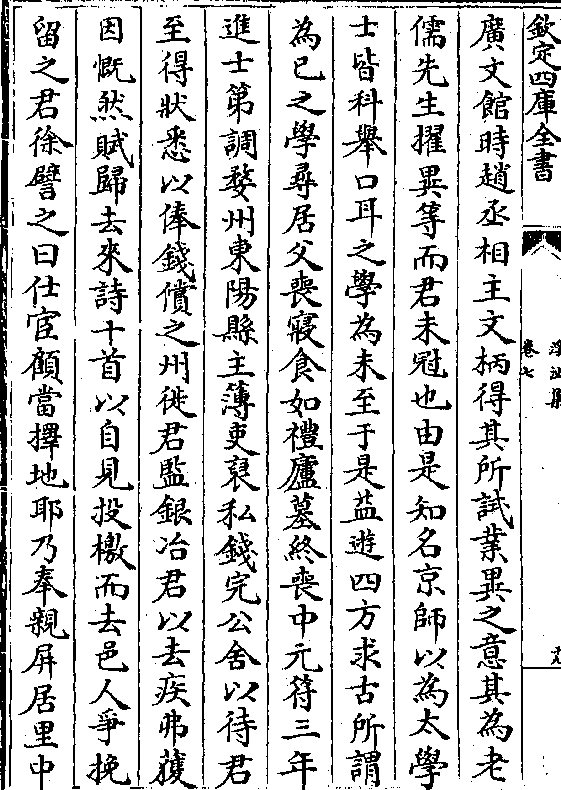 欽定四庫全書
卷七
廣文館時趙丞相主文柄得其所試業異之意其為老
儒先生擢異等而君未冠也由是知名京師以為太學
士皆科舉口耳之學為未至于是益遊四方求古所謂
為已之學尋居父喪寢食如禮廬墓終喪中元符三年
進士第調婺州東陽縣主簿吏裒私錢完公舍以待君
至得狀悉以俸錢償之州徙君監銀冶君以去疾弗獲
因慨然賦歸去來詩十首以自見投檄而去邑人爭挽
留之君徐譬之曰仕宦顧當擇地耶乃奉親屏居里中